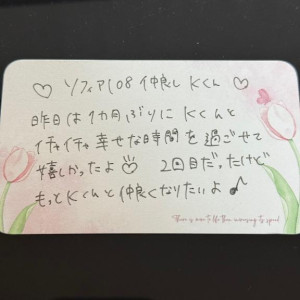 ♡ ソフィア108 仲良し Kくん ♡
昨日は1カ月ぶりに Kくんと
イチャイチャ幸せな時間を過ごせて
嬉しかったよ♡ 2回目だったけど
もっとKくんと仲良くなりたいよ♪
There is more to life than increasing its speed